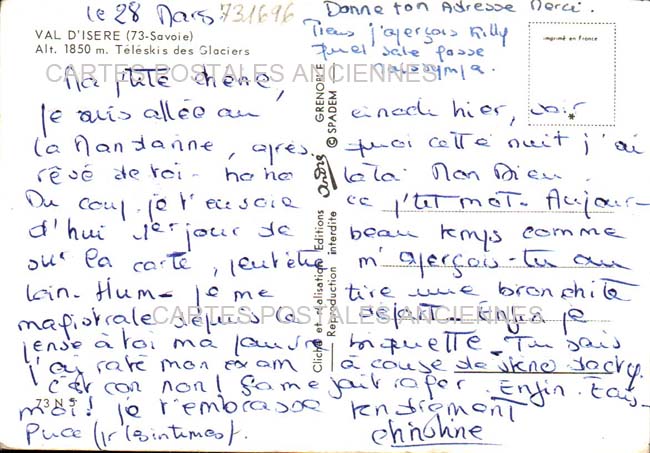 le 28 Mars 731696
Donne ton Adresse Merci.
VAL D'ISERE (73-Savoie)
Alt. 1850 m. Téléskis des Glaciers
Tiens j'aperçois Killy
quel sale gosse
Imprimé en France
CARTES POSTALES ANCIENNES
Ma p'tite chérie,
je suis allée au cinoch hier, voir
la Mandarine, après quoi cette nuit j'ai
rêvé de toi - ha ha lala. Mon Dieu.
Du coup je t'envoie ce p'tit mot. Aujour-
d'hui 1er jour de beau temps comme
sur la carte, peut être m'aperçois-tu au
loin - Hum - je me tire une bronchite
magistrale depuis le départ. Enfin je
CARTES POSTALES ANCIENNES
pense à toi ma pauvre biquette - Tu sais
j'ai raté mon exam à cause de sténo dacty.
c'est con non! Ça me fait rager. Enfin. Fais-
moi! je t'embrasse tendrement
Puce (pr les intimes). Christine
73 N 5
Cliché et réalisation Editions André GRENOBLE
Reproduction interdite © SPADEM